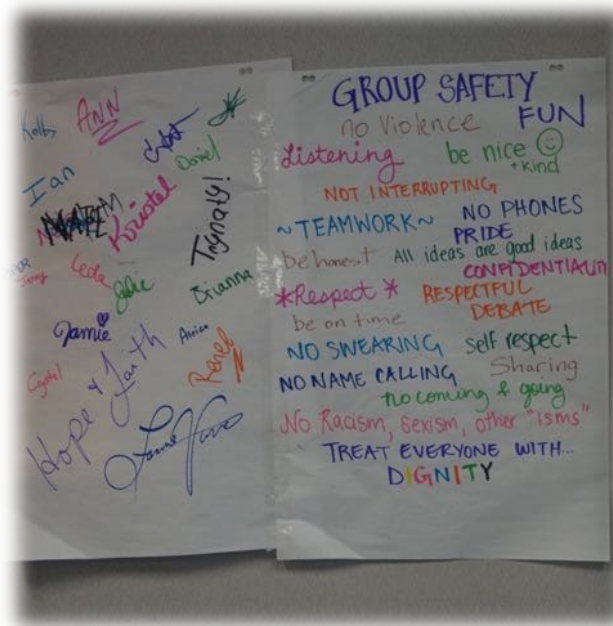 Kolby
ANN
Ian
Daniel
Kristel
Trgnaty!
Leola
Brianna
Jamie
Renee
Hope & Faith
Crystal
GROUP SAFETY
no Violence
FUN
Listening
be nice
+ Kind
NOT INTERRUPTING
~TEAMWORK~
NO PHONES
PRIDE
be honest
All ideas are good ideas
CONFIDENTIALITY
*Respect*
RESPECTFUL
DEBATE
be on time
NO SWEARING
self respect
Sharing
NO NAME CALLING
no coming & going
No Racism, sexism, other "isms"
TREAT EVERYONE WITH...
DIGNITY